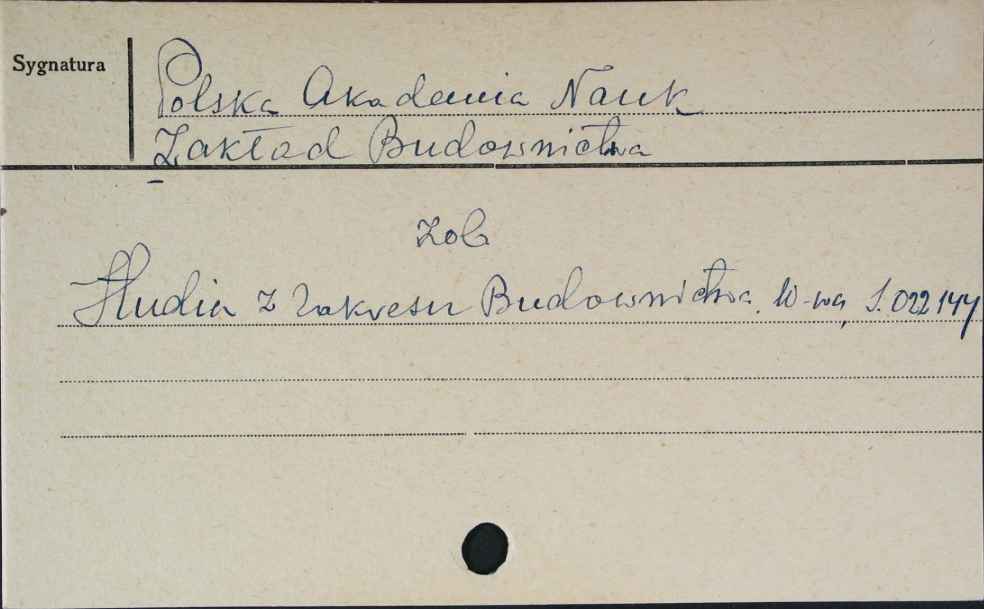 Sygnatura
Polska Akademia Nauk
Zakład Budownictwa
zob
Studia z zakresu Budownictwa. W-wa, S. 022144